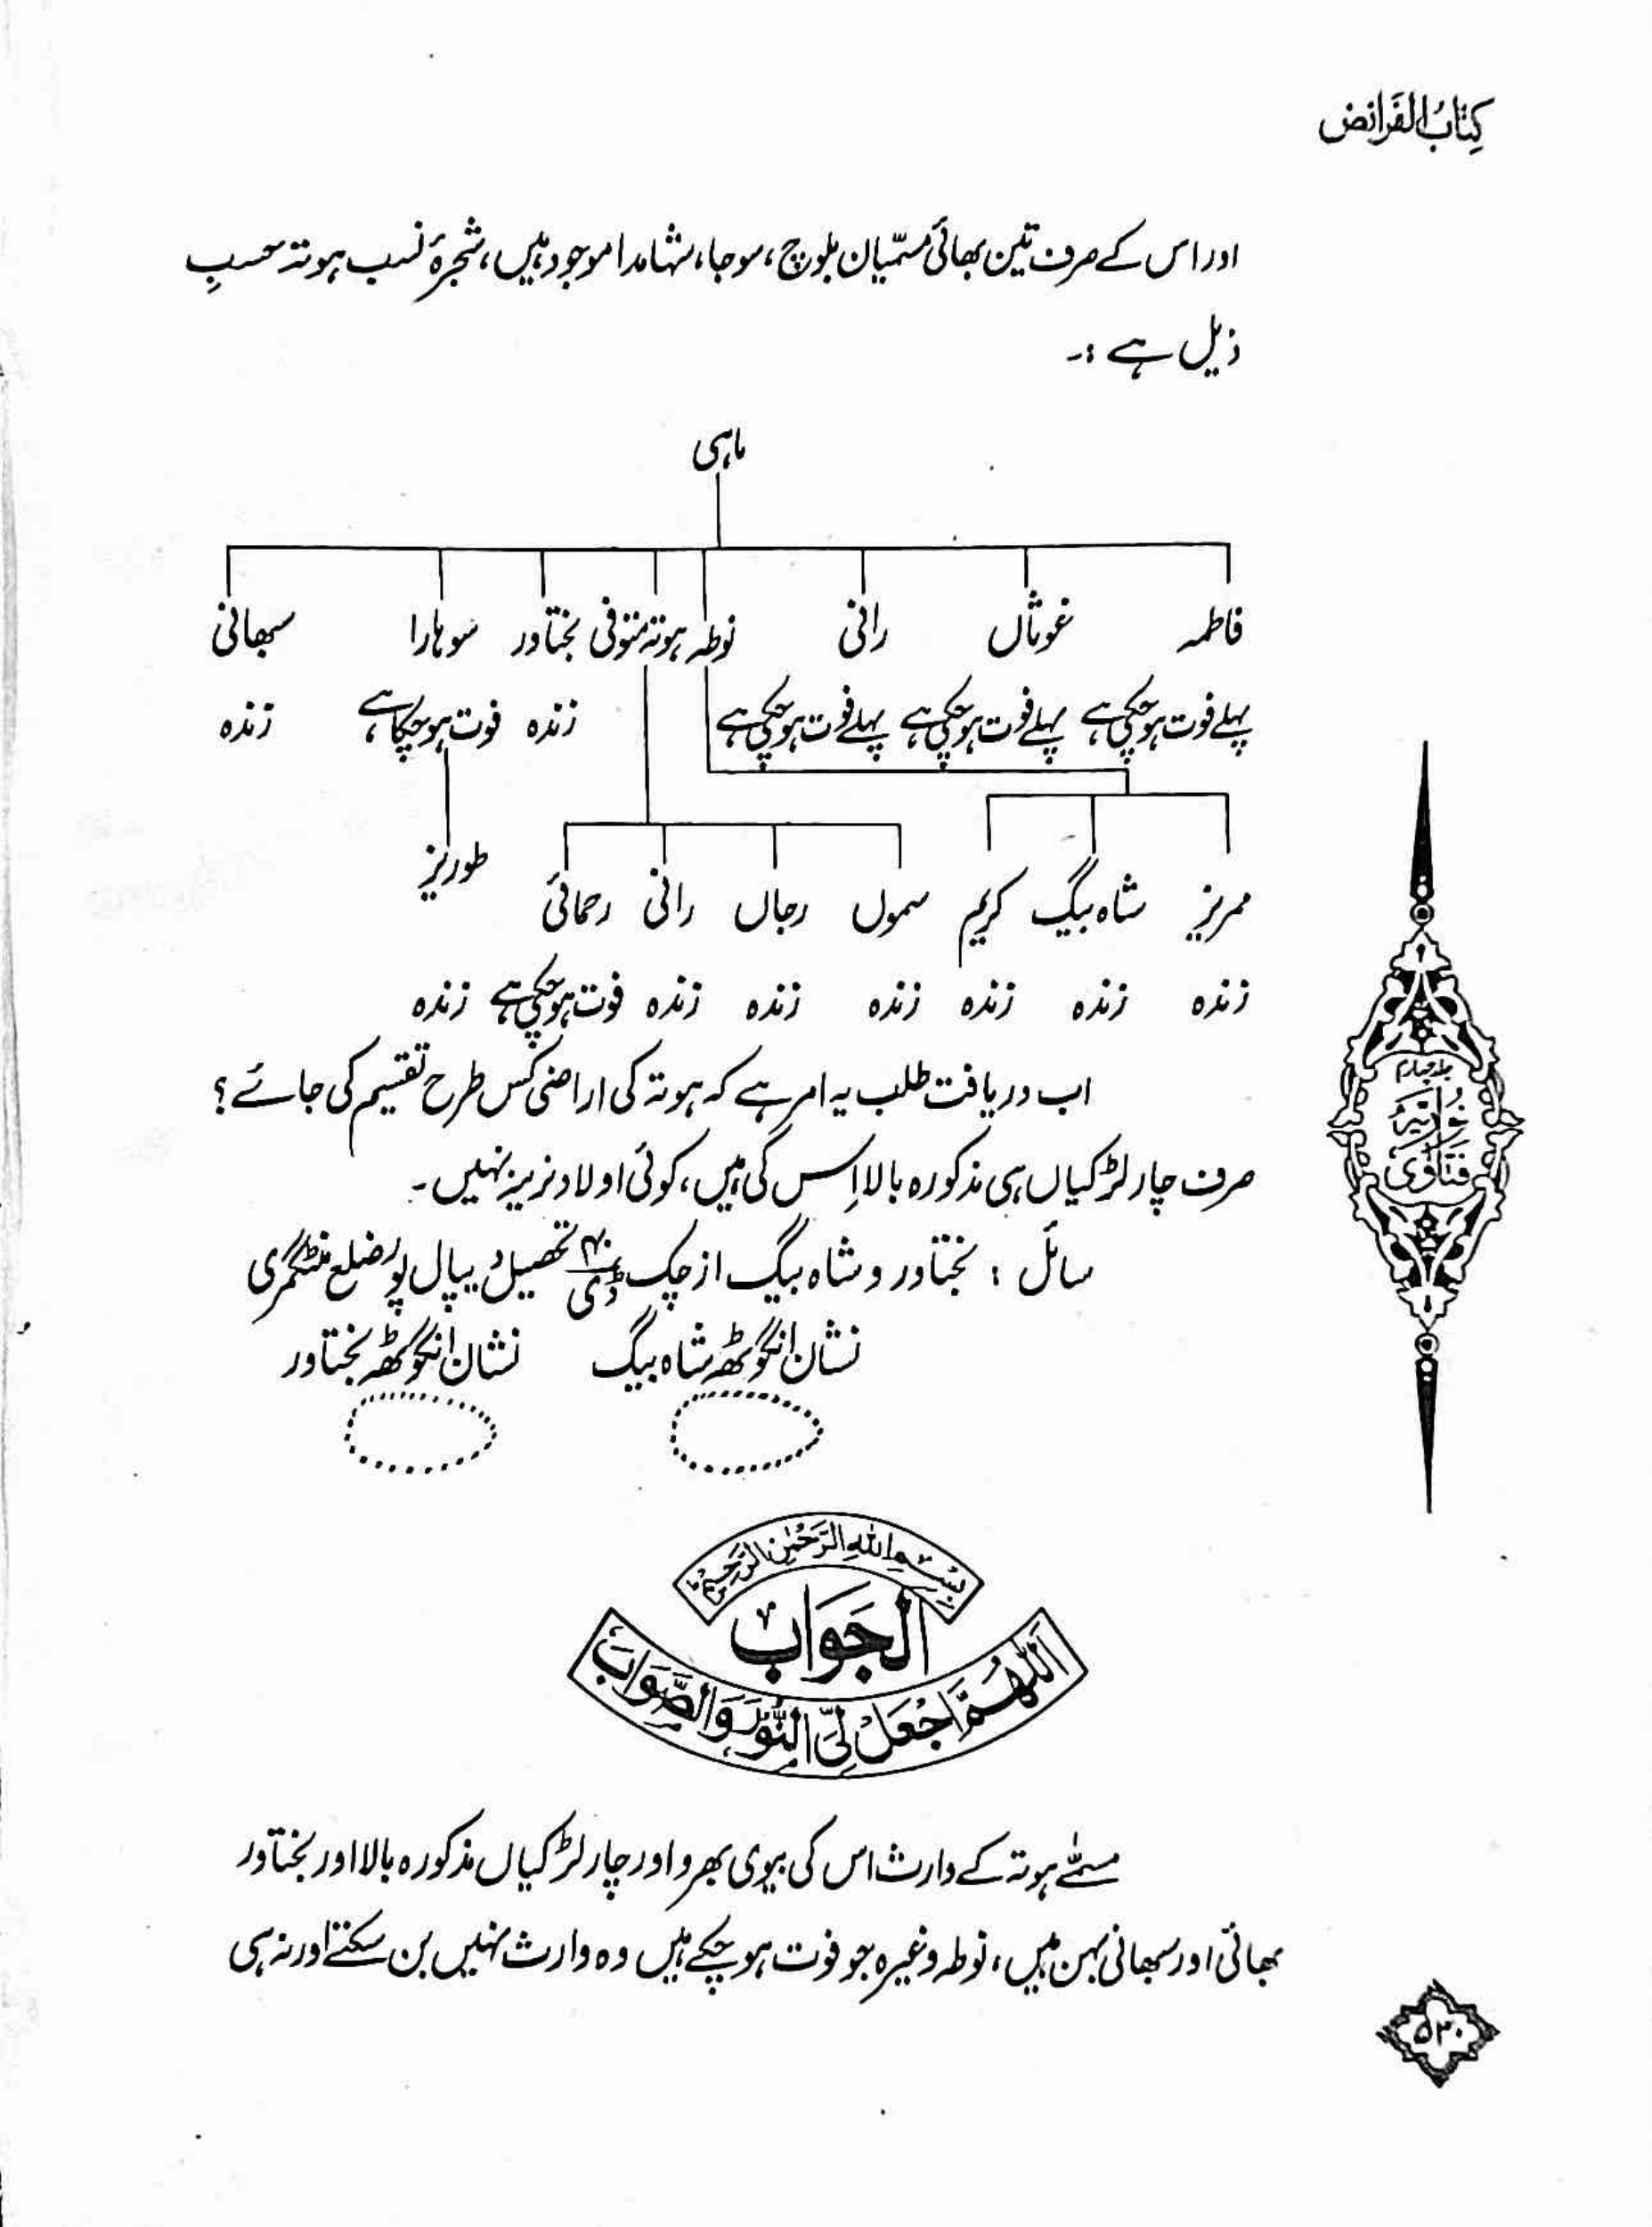 کِتَابُ الفَرائض
اور اس کے صرف تین بھائی مسمّیان بلوچ، سوجا، شہامدا موجود ہیں، شجرۂ نسب ہوتہ حسبِ
ذیل ہے :۔
ماہی
فاطمہ غوثاں رانی نوطہ ہوتہ متوفی بختاور سوہارا سبھانی
پہلے فوت ہوچکی ہے پہلے فوت ہوچکی ہے پہلے فوت ہوچکی ہے زندہ فوت ہوچکا ہے زندہ
طوریز
ممریز شاہ بیگ کریم سموں رجاں رانی رحمائی
زندہ زندہ زندہ زندہ زندہ زندہ فوت ہوچکی ہے زندہ
اب دریافت طلب یہ امر ہے کہ ہوتہ کی اراضی کس طرح تقسیم کی جائے؟
صرف چار لڑکیاں ہی مذکورہ بالا اس کی ہیں، کوئی اولاد نرینہ نہیں۔
سائل : بختاور و شاہ بیگ از چک ڈی تحصیل دیپال پور ضلع منٹگمری
نشان انگوٹھہ شاہ بیگ نشان انگوٹھہ بختاور
جلد چہارم
فتاوی نوریہ
بِسْمِ اللهِ الرَّحْمٰنِ الرَّحِيْمِ
الجَوَابُ
اَللّٰهُمَّ اجْعَلْ لِّيَ النُّوْرَ وَالصَّوَابَ
مسمّٰے ہوتہ کے وارث اس کی بیوی بھرو اور چار لڑکیاں مذکورہ بالا اور بختاور
بھائی اور سبھانی بہن ہیں، نوطہ وغیرہ جو فوت ہوچکے ہیں وہ وارث نہیں بن سکتے اور نہ ہی
۵۳۰